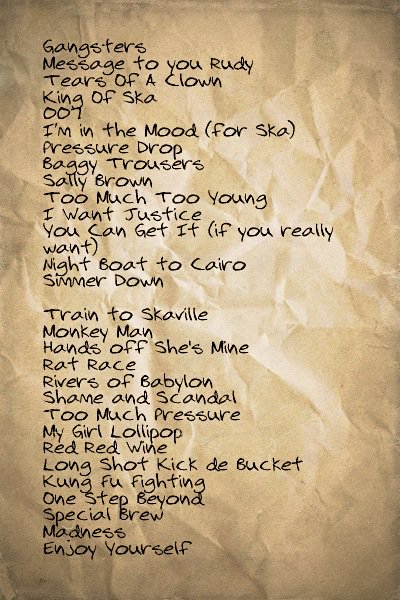 Gangsters
Message to you Rudy
Tears Of A Clown
King Of Ska
007
I'm in the Mood (for Ska)
Pressure Drop
Baggy Trousers
Sally Brown
Too Much Too Young
I Want Justice
You Can Get It (if you really
want)
Night Boat to Cairo
Simmer Down

Train to Skaville
Monkey Man
Hands off She's Mine
Rat Race
Rivers of Babylon
Shame and Scandal
Too Much Pressure
My Girl Lollipop
Red Red Wine
Long Shot Kick de Bucket
Kung Fu Fighting
One Step Beyond
Special Brew
Madness
Enjoy Yourself